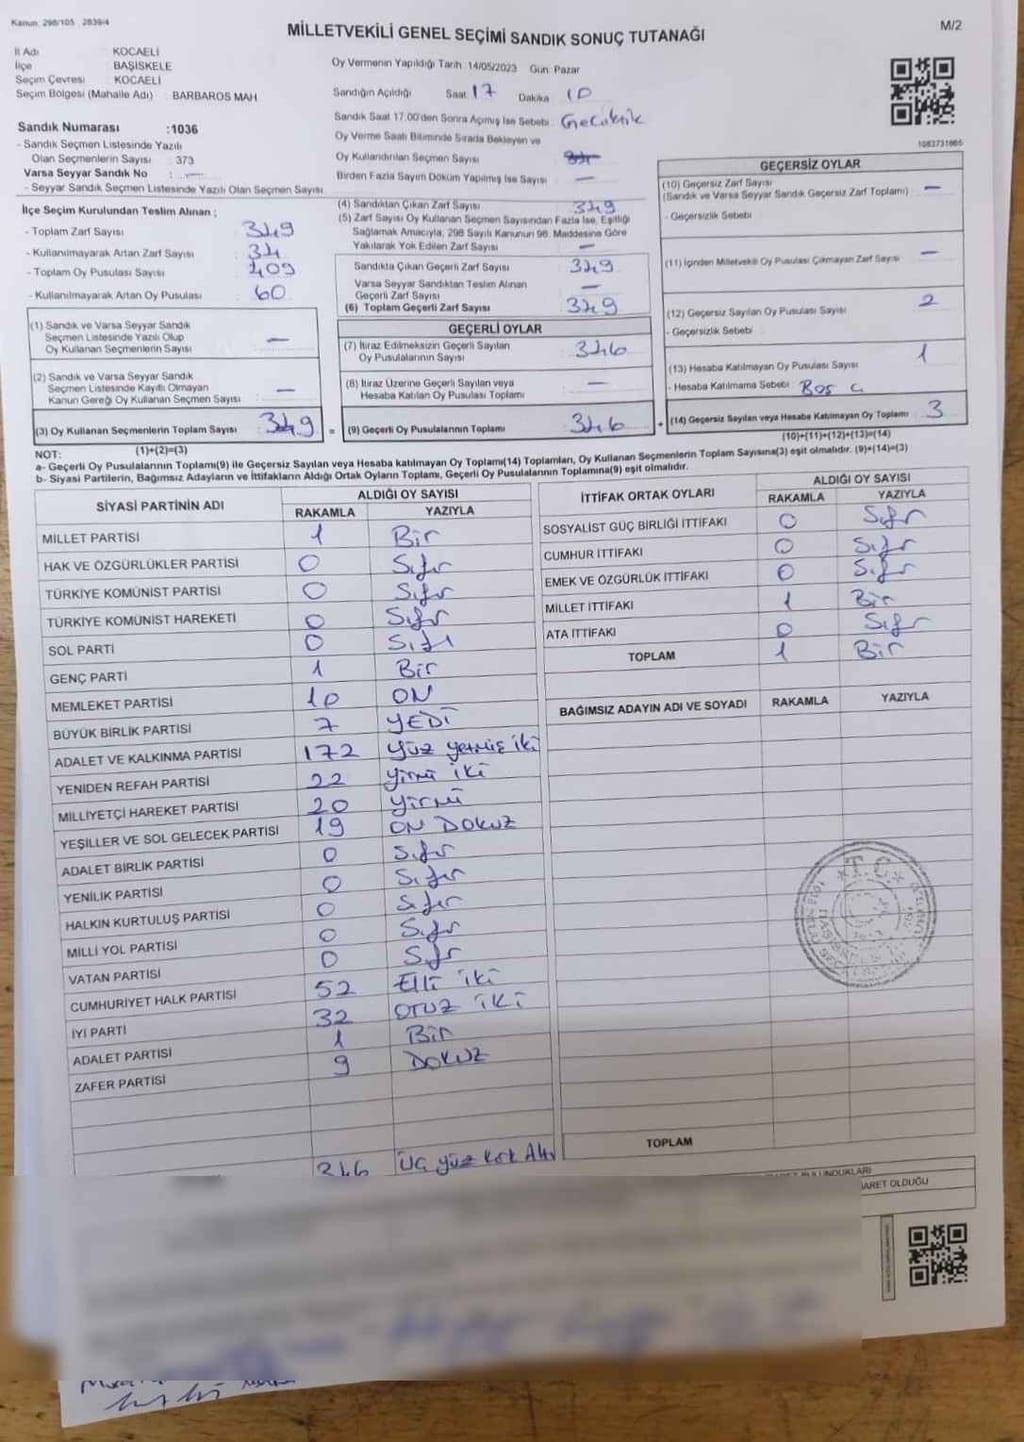 Kanun: 298/105 2839/4
MİLLETVEKİLİ GENEL SEÇİMİ SANDIK SONUÇ TUTANAĞI
M/2
İl Adı KOCAELİ
İlçe BAŞİSKELE
Seçim Çevresi KOCAELİ
Seçim Bölgesi (Mahalle Adı) BARBAROS MAH
Oy Vermenin Yapıldığı Tarih :14/05/2023 Gün: Pazar
Sandığın Açıldığı Saat 17 Dakika 10
Sandık Saat 17.00'den Sonra Açımış İse Sebebi: Gecikmik
Oy Verme Saati Bitiminde Sırada Bekleyen ve
Oy Kullandırılan Seçmen Sayısı
Birden Fazla Sayım Döküm Yapılmış İse Sayısı —
1083731665
Sandık Numarası :1036
- Sandık Seçmen Listesinde Yazılı
Olan Seçmenlerin Sayısı : 373
Varsa Seyyar Sandık No : —
- Seyyar Sandık Seçmen Listesinde Yazılı Olan Seçmen Sayısı
İlçe Seçim Kurulundan Teslim Alınan ;
- Toplam Zarf Sayısı : 349
- Kullanılmayarak Artan Zarf Sayısı : 34
- Toplam Oy Pusulası Sayısı : 409
- Kullanılmayarak Artan Oy Pusulası : 60
(1) Sandık ve Varsa Seyyar Sandık
Seçmen Listesinde Yazılı Olup
Oy Kullanan Seçmenlerin Sayısı : —
(2) Sandık ve Varsa Seyyar Sandık
Seçmen Listesinde Kayıtlı Olmayan
Kanun Gereği Oy Kullanan Seçmen Sayısı : —
(3) Oy Kullanan Seçmenlerin Toplam Sayısı : 349
(1)+(2)=(3)
(4) Sandıktan Çıkan Zarf Sayısı 349
(5) Zarf Sayısı Oy Kullanan Seçmen Sayısından Fazla İse, Eşitliği
Sağlamak Amacıyla, 298 Sayılı Kanunun 98. Maddesine Göre
Yakılarak Yok Edilen Zarf Sayısı —
Sandıkta Çıkan Geçerli Zarf Sayısı 349
Varsa Seyyar Sandıktan Teslim Alınan
Geçerli Zarf Sayısı —
(6) Toplam Geçerli Zarf Sayısı 349
GEÇERLİ OYLAR
(7) İtiraz Edilmeksizin Geçerli Sayılan
Oy Pusulalarının Sayısı 346
(8) İtiraz Üzerine Geçerli Sayılan veya
Hesaba Katılan Oy Pusulası Toplamı —
= (9) Geçerli Oy Pusulalarının Toplamı 346 +
GEÇERSİZ OYLAR
(10) Geçersiz Zarf Sayısı
(Sandık ve Varsa Seyyar Sandık Geçersiz Zarf Toplamı) —
- Geçersizlik Sebebi
(11) İçinden Milletvekili Oy Pusulası Çıkmayan Zarf Sayısı —
(12) Geçersiz Sayılan Oy Pusulası Sayısı 2
- Geçersizlik Sebebi
(13) Hesaba Katılmayan Oy Pusulası Sayısı 1
- Hesaba Katılmama Sebebi Boş
(14) Geçersiz Sayılan veya Hesaba Katılmayan Oy Toplamı 3
(10)+(11)+(12)+(13)=(14)
NOT:
a- Geçerli Oy Pusulalarının Toplamı(9) ile Geçersiz Sayılan veya Hesaba katılmayan Oy Toplamı(14) Toplamları, Oy Kullanan Seçmenlerin Toplam Sayısına(3) eşit olmalıdır. (9)+(14)=(3)
b- Siyasi Partilerin, Bağımsız Adayların ve İttifakların Aldığı Ortak Oyların Toplamı, Geçerli Oy Pusulalarının Toplamına(9) eşit olmalıdır.
SİYASİ PARTİNİN ADI ALDIĞI OY SAYISI
RAKAMLA YAZIYLA
MİLLET PARTİSİ 1 Bir
HAK VE ÖZGÜRLÜKLER PARTİSİ 0 Sıfır
TÜRKİYE KOMÜNİST PARTİSİ 0 Sıfır
TÜRKİYE KOMÜNİST HAREKETİ 0 Sıfır
SOL PARTİ 0 Sıfı
GENÇ PARTİ 1 Bir
MEMLEKET PARTİSİ 10 ON
BÜYÜK BİRLİK PARTİSİ 7 YEDİ
ADALET VE KALKINMA PARTİSİ 172 Yüz yetmiş iki
YENİDEN REFAH PARTİSİ 22 yirmi iki
MİLLİYETÇİ HAREKET PARTİSİ 20 yirmi
YEŞİLLER VE SOL GELECEK PARTİSİ 19 ON DOKUZ
ADALET BİRLİK PARTİSİ 0 Sıfır
YENİLİK PARTİSİ 0 Sıfır
HALKIN KURTULUŞ PARTİSİ 0 Sıfır
MİLLİ YOL PARTİSİ 0 Sıfır
VATAN PARTİSİ 0 Sıfır
CUMHURİYET HALK PARTİSİ 52 Elli iki
İYİ PARTİ 32 OTUZ İKİ
ADALET PARTİSİ 1 Bir
ZAFER PARTİSİ 9 DOKUZ
346 Üç yüz kırk Altı
İTTİFAK ORTAK OYLARI ALDIĞI OY SAYISI
RAKAMLA YAZIYLA
SOSYALİST GÜÇ BİRLİĞİ İTTİFAKI 0 Sıfır
CUMHUR İTTİFAKI 0 Sıfır
EMEK VE ÖZGÜRLÜK İTTİFAKI 0 Sıfır
MİLLET İTTİFAKI 1 Bir
ATA İTTİFAKI 0 Sıfır
TOPLAM 1 Bir
BAĞIMSIZ ADAYIN ADI VE SOYADI RAKAMLA YAZIYLA
T.C.
TOPLAM
BULUNDUKLARI
ARET OLDUĞU